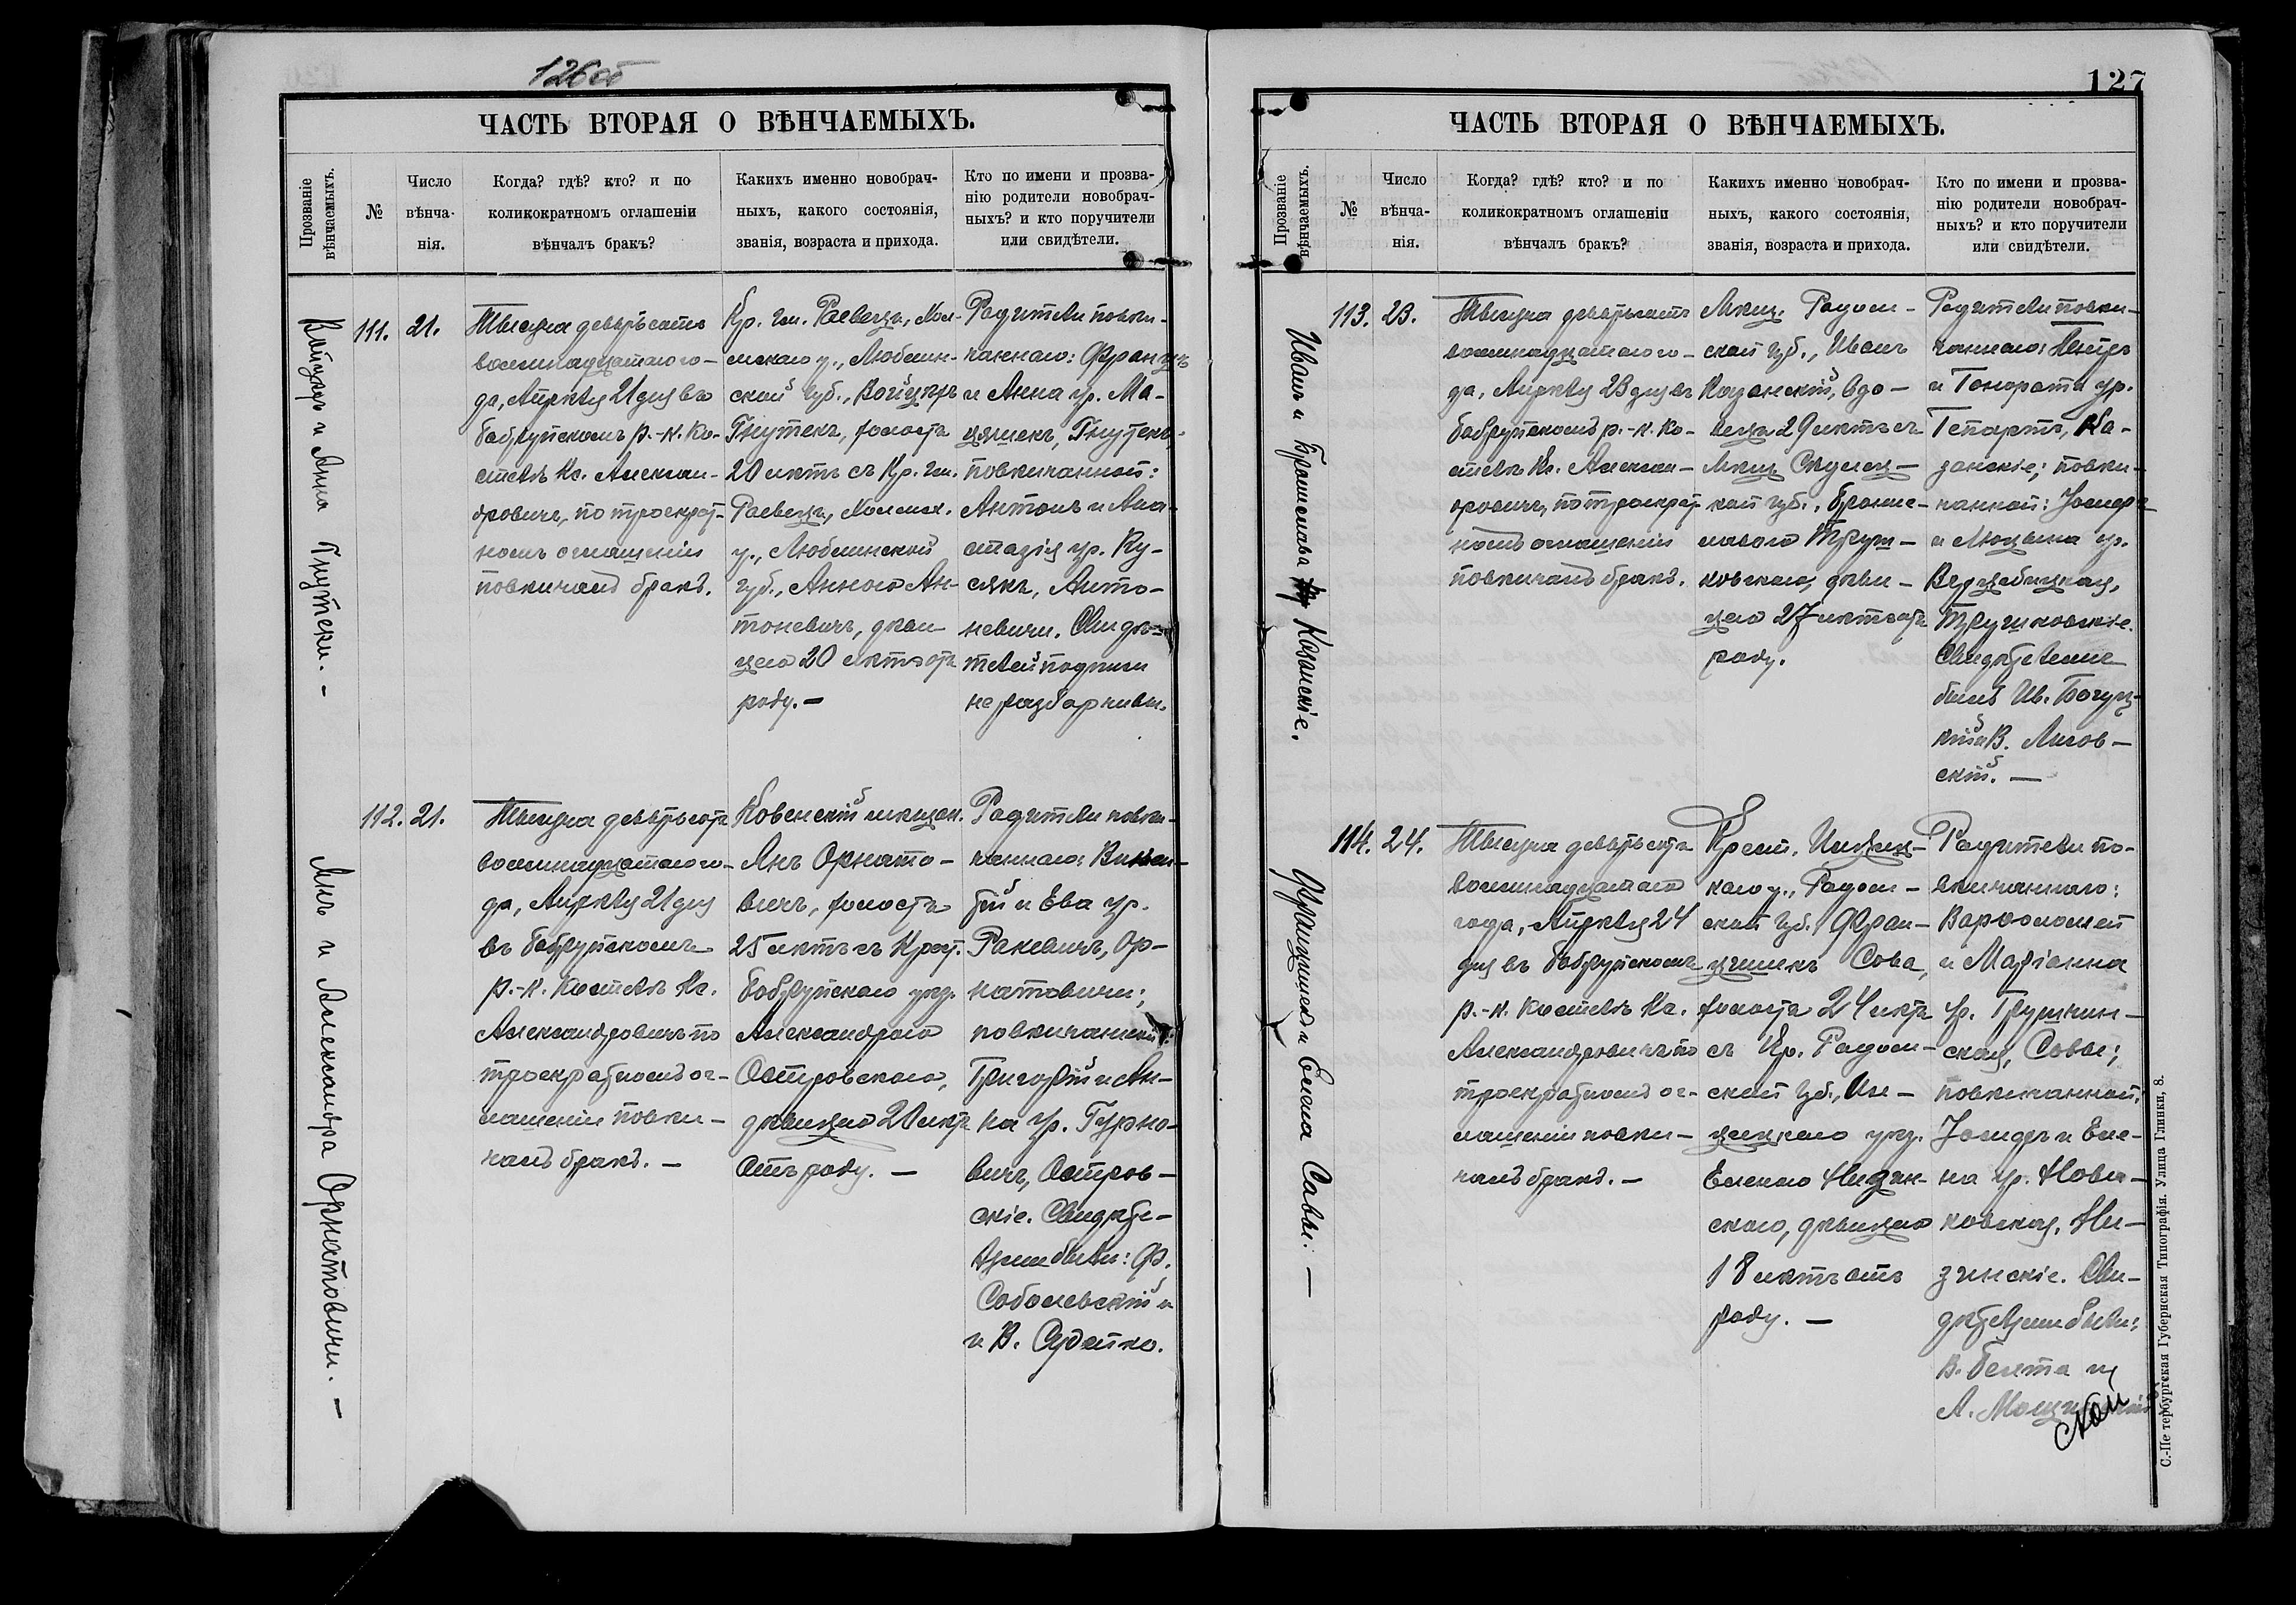 126об
ЧАСТЬ ВТОРАЯ О ВѢНЧАЕМЫХЪ.
Прозваніе вѣнчаемыхъ.
№
Число вѣнча-
нія.
Когда? гдѣ? кто? и по
коликократномъ оглашеніи
вѣнчалъ бракъ?
Какихъ именно новобрач-
ныхъ, какого состоянія,
званія, возраста и прихода.
Кто по имени и прозва-
нію родители новобрач-
ныхъ? и кто поручители
или свидѣтели.
Войцехъ и Анна Гнутеки. -
111.
21.
Тысяча девятьсотъ
восемнадцатаго го-
да, Апрѣля 21 дня въ
Бобруйскомъ р.-к. Ко-
стелѣ Кс. Алексан-
дровичъ, по троекрат-
номъ оглашеніи
повѣнчалъ бракъ.
Кр. гм. Раевецъ, Хол-
мскаго у., Люблин-
ской губ., Войцехъ
Гнутекъ, холостъ
20 лѣтъ съ Кр. гм.
Раевецъ, Холмск.
у., Люблинской
губ., Анною Ан-
тоневичъ, дѣви-
цею 20 лѣтъ отъ
роду. -
Родители повѣн-
чаннаго: Францъ
и Анна ур. Ма-
цяшекъ, Гнутеки,
повѣнчанной:
Антонъ и Ана-
стазія ур. Ку-
сякъ, Анто-
невичи. Свидѣ-
телей подписи
не разборчивы.
Янъ и Александра Орнатовичи. -
112.
21.
Тысяча девятьсотъ
восемнадцатаго го-
да, Апрѣля 21 дня
въ Бобруйскомъ
р.-к. Костелѣ Кс.
Александровичъ по
троекратномъ ог-
лашеніи повѣн-
чалъ бракъ. -
Ковенскій мѣщан.
Янъ Орнато-
вичъ, холостъ
25 лѣтъ съ Крест.
Бобруйскаго уѣз.
Александрою
Островскою,
дѣвицею 20 лѣтъ
отъ роду. -
Родители повѣн-
чаннаго:
и Ева ур.
Ракевичъ, Ор-
натовичи;
повѣнчанной:
Григорій и Ан-
на ур. Гурно-
вичъ, Остров-
скіе. Свидѣте-
лями были: Ф.
Соболевскій и
и В. Судейко.
127
ЧАСТЬ ВТОРАЯ О ВѢНЧАЕМЫХЪ.
Прозваніе вѣнчаемыхъ.
№
Число вѣнча-
нія.
Когда? гдѣ? кто? и по
коликократномъ оглашеніи
вѣнчалъ бракъ?
Какихъ именно новобрач-
ныхъ, какого состоянія,
званія, возраста и прихода.
Кто по имени и прозва-
нію родители новобрач-
ныхъ? и кто поручители
или свидѣтели.
Иванъ и Бронислава Козанскіе.
113.
23.
Тысяча девятьсотъ
восемнадцатаго го-
да, Апрѣля 23 дня въ
Бобруйскомъ р.-к. Ко-
стелѣ Кс. Алексан-
дровичъ, по троекрат-
номъ оглашеніи
повѣнчалъ бракъ.
Мѣщ. Радом-
ской губ., Иванъ
Козанскій, вдо-
вецъ 29 лѣтъ съ
Мѣщ. Слуцк-
кой губ., Брони-
славою Труш-
ковскою, дѣви-
цею 27 лѣтъ отъ
роду.
Родители повѣн-
чаннаго: Петръ
и Гонората ур.
Гепартъ, Ка-
занскіе; повѣн-
чанной: Іосифъ
и Люцына ур.
Трушковскіе.
Свидѣтелями
былъ Ив. Богуц-
кій и В. Лигов-
скій. -
Францишекъ и Елена Савы. -
114.
24.
Тысяча девятьсотъ
восемнадцатаго
года, Апрѣля 24
дня въ Бобруйскомъ
р.-к. Костелѣ Кс.
Александровичъ по
троекратномъ ог-
лашеніи повѣн-
чалъ бракъ. -
Крест. Илжец-
каго у., Радом-
ской губ., Фран-
цишекъ Сова,
холостъ 24 лѣтъ
съ Кр. Радом-
ской губ., Ил-
жецкаго уѣз.
Еленою Низин-
скою, дѣвицею
18 лѣтъ отъ
роду. -
Родители по-
вѣнчаннаго:
Варфоломей
и Маріанна
ур. Грушчин-
ская, Совы;
повѣнчанной:
Іосифъ и Еле-
на ур. Нова-
ковская, Ни-
зинскіе. Сви-
дѣтелями были:
В. Белта и
С.-Петербургская Губернская Типографія. Улица Глинки, 8.